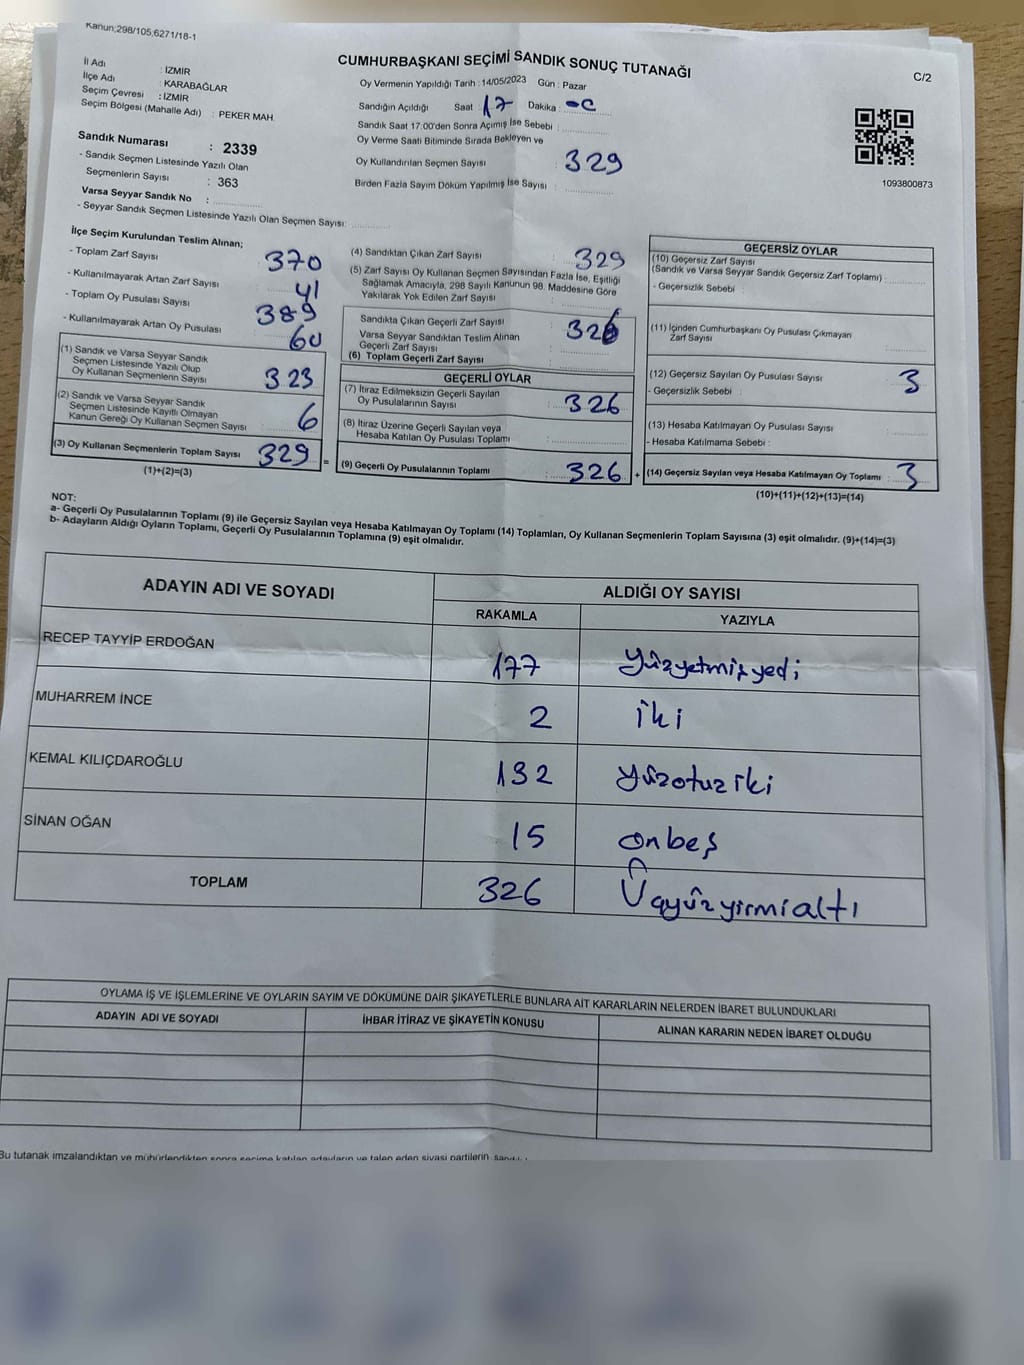 Kanun;298/105,6271/18-1
CUMHURBAŞKANI SEÇİMİ SANDIK SONUÇ TUTANAĞI
C/2
İl Adı : İZMİR
İlçe Adı : KARABAĞLAR
Seçim Çevresi : İZMİR
Seçim Bölgesi (Mahalle Adı) : PEKER MAH.
Oy Vermenin Yapıldığı Tarih : 14/05/2023 Gün : Pazar
Sandığın Açıldığı Saat 17 Dakika :
Sandık Saat 17:00'den Sonra Açımış İse Sebebi :
Oy Verme Saati Bitiminde Sırada Bekleyen ve
Oy Kullandırılan Seçmen Sayısı : 329
Birden Fazla Sayım Döküm Yapılmış İse Sayısı :
1093800873
Sandık Numarası : 2339
- Sandık Seçmen Listesinde Yazılı Olan
Seçmenlerin Sayısı : 363
Varsa Seyyar Sandık No :
- Seyyar Sandık Seçmen Listesinde Yazılı Olan Seçmen Sayısı:
İlçe Seçim Kurulundan Teslim Alınan;
- Toplam Zarf Sayısı 370
- Kullanılmayarak Artan Zarf Sayısı 41
- Toplam Oy Pusulası Sayısı 389
- Kullanılmayarak Artan Oy Pusulası 60
(1) Sandık ve Varsa Seyyar Sandık
Seçmen Listesinde Yazılı Olup
Oy Kullanan Seçmenlerin Sayısı 323
(2) Sandık ve Varsa Seyyar Sandık
Seçmen Listesinde Kayıtlı Olmayan
Kanun Gereği Oy Kullanan Seçmen Sayısı 6
(3) Oy Kullanan Seçmenlerin Toplam Sayısı 329 =
(1)+(2)=(3)
(4) Sandıktan Çıkan Zarf Sayısı : 329
(5) Zarf Sayısı Oy Kullanan Seçmen Sayısından Fazla İse, Eşitliği
Sağlamak Amacıyla, 298 Sayılı Kanunun 98. Maddesine Göre
Yakılarak Yok Edilen Zarf Sayısı :
Sandıkta Çıkan Geçerli Zarf Sayısı : 326
Varsa Seyyar Sandıktan Teslim Alınan
Geçerli Zarf Sayısı :
(6) Toplam Geçerli Zarf Sayısı :
GEÇERLİ OYLAR
(7) İtiraz Edilmeksizin Geçerli Sayılan
Oy Pusulalarının Sayısı : 326
(8) İtiraz Üzerine Geçerli Sayılan veya
Hesaba Katılan Oy Pusulası Toplamı :
(9) Geçerli Oy Pusulalarının Toplamı : 326 +
GEÇERSİZ OYLAR
(10) Geçersiz Zarf Sayısı
(Sandık ve Varsa Seyyar Sandık Geçersiz Zarf Toplamı) :
- Geçersizlik Sebebi :
(11) İçinden Cumhurbaşkanı Oy Pusulası Çıkmayan
Zarf Sayısı :
(12) Geçersiz Sayılan Oy Pusulası Sayısı : 3
- Geçersizlik Sebebi :
(13) Hesaba Katılmayan Oy Pusulası Sayısı :
- Hesaba Katılmama Sebebi :
(14) Geçersiz Sayılan veya Hesaba Katılmayan Oy Toplamı : 3
(10)+(11)+(12)+(13)=(14)
NOT:
a- Geçerli Oy Pusulalarının Toplamı (9) ile Geçersiz Sayılan veya Hesaba Katılmayan Oy Toplamı (14) Toplamları, Oy Kullanan Seçmenlerin Toplam Sayısına (3) eşit olmalıdır. (9)+(14)=(3)
b- Adayların Aldığı Oyların Toplamı, Geçerli Oy Pusulalarının Toplamına (9) eşit olmalıdır.
ADAYIN ADI VE SOYADI
ALDIĞI OY SAYISI
RAKAMLA YAZIYLA
RECEP TAYYİP ERDOĞAN 177 Yüzyetmişyedi
MUHARREM İNCE 2 iki
KEMAL KILIÇDAROĞLU 132 yüzotuziki
SİNAN OĞAN 15 onbeş
TOPLAM 326 Üçyüzyirmialtı
OYLAMA İŞ VE İŞLEMLERİNE VE OYLARIN SAYIM VE DÖKÜMÜNE DAİR ŞİKAYETLERLE BUNLARA AİT KARARLARIN NELERDEN İBARET BULUNDUKLARI
ADAYIN ADI VE SOYADI İHBAR İTİRAZ VE ŞİKAYETİN KONUSU ALINAN KARARIN NEDEN İBARET OLDUĞU
Bu tutanak imzalandıktan ve mühürlendikten sonra seçime katılan adayların ve talep eden siyasi partilerin